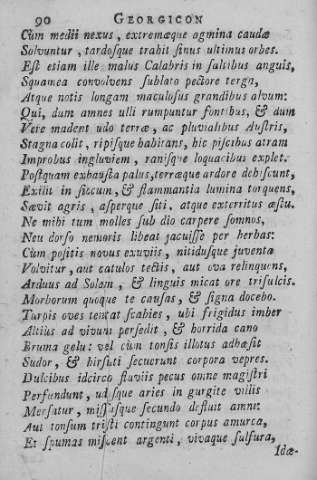 90 GEORGICON
Cùm medii nexus, extremæque agmina caudæ
Solvuntur, tardosque trahit sinus ultimus orbes.
Est etiam ille malus Calabris in saltibus anguis,
Squamea convolvens sublato pectore terga,
Atque notis longam maculosus grandibus alvum:
Qui, dum amnes ulli rumpuntur fontibus, & dum
Vere madent udo terræ, ac pluvialibus Austris,
Stagna colit, ripisque habitans, hic piscibus atram
Improbus ingluviem, ranisque loquacibus explet.
Postquam exhausta palus, terræque ardore dehiscunt,
Exilit in siccum, & flammantia lumina torquens,
Sævit agris, asperque siti, atque exterritus æstu.
Ne mihi tum molles sub dio carpere somnos,
Neu dorso nemoris libeat jacuisse per herbas:
Cùm positis novus exuviis, nitidusque juventa
Volvitur, aut catulos tectis, aut ova relinquens,
Arduus ad Solem, & linguis micat ore trisulcis.
Morborum quoque te causas, & signa docebo.
Turpis oves tentat scabies, ubi frigidus imber
Altiùs ad vivum persedit, & horrida cano
Bruma gelu: vel cùm tonsis illotus adhæsit
Sudor, & hirsuti secuerunt corpora vepres.
Dulcibus idcirco fluviis pecus omne magistri
Perfundunt, udisque aries in gurgite villis
Mersatur, missusque secundo defluit amni:
Aut tonsum tristi contingunt corpus amurca,
Et spumas miscent argenti, vivaque sulfura,
Idæ-